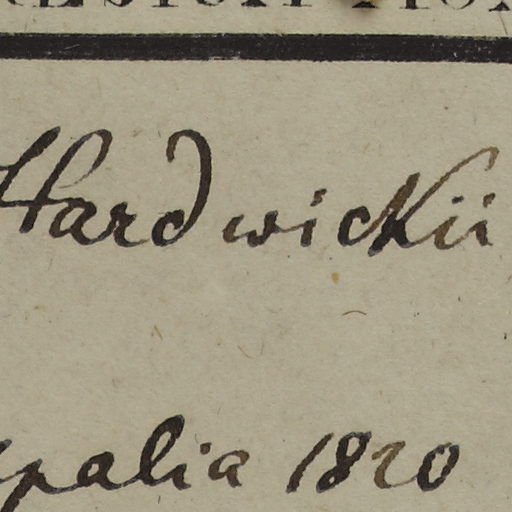 Hardwickii
palia 1820